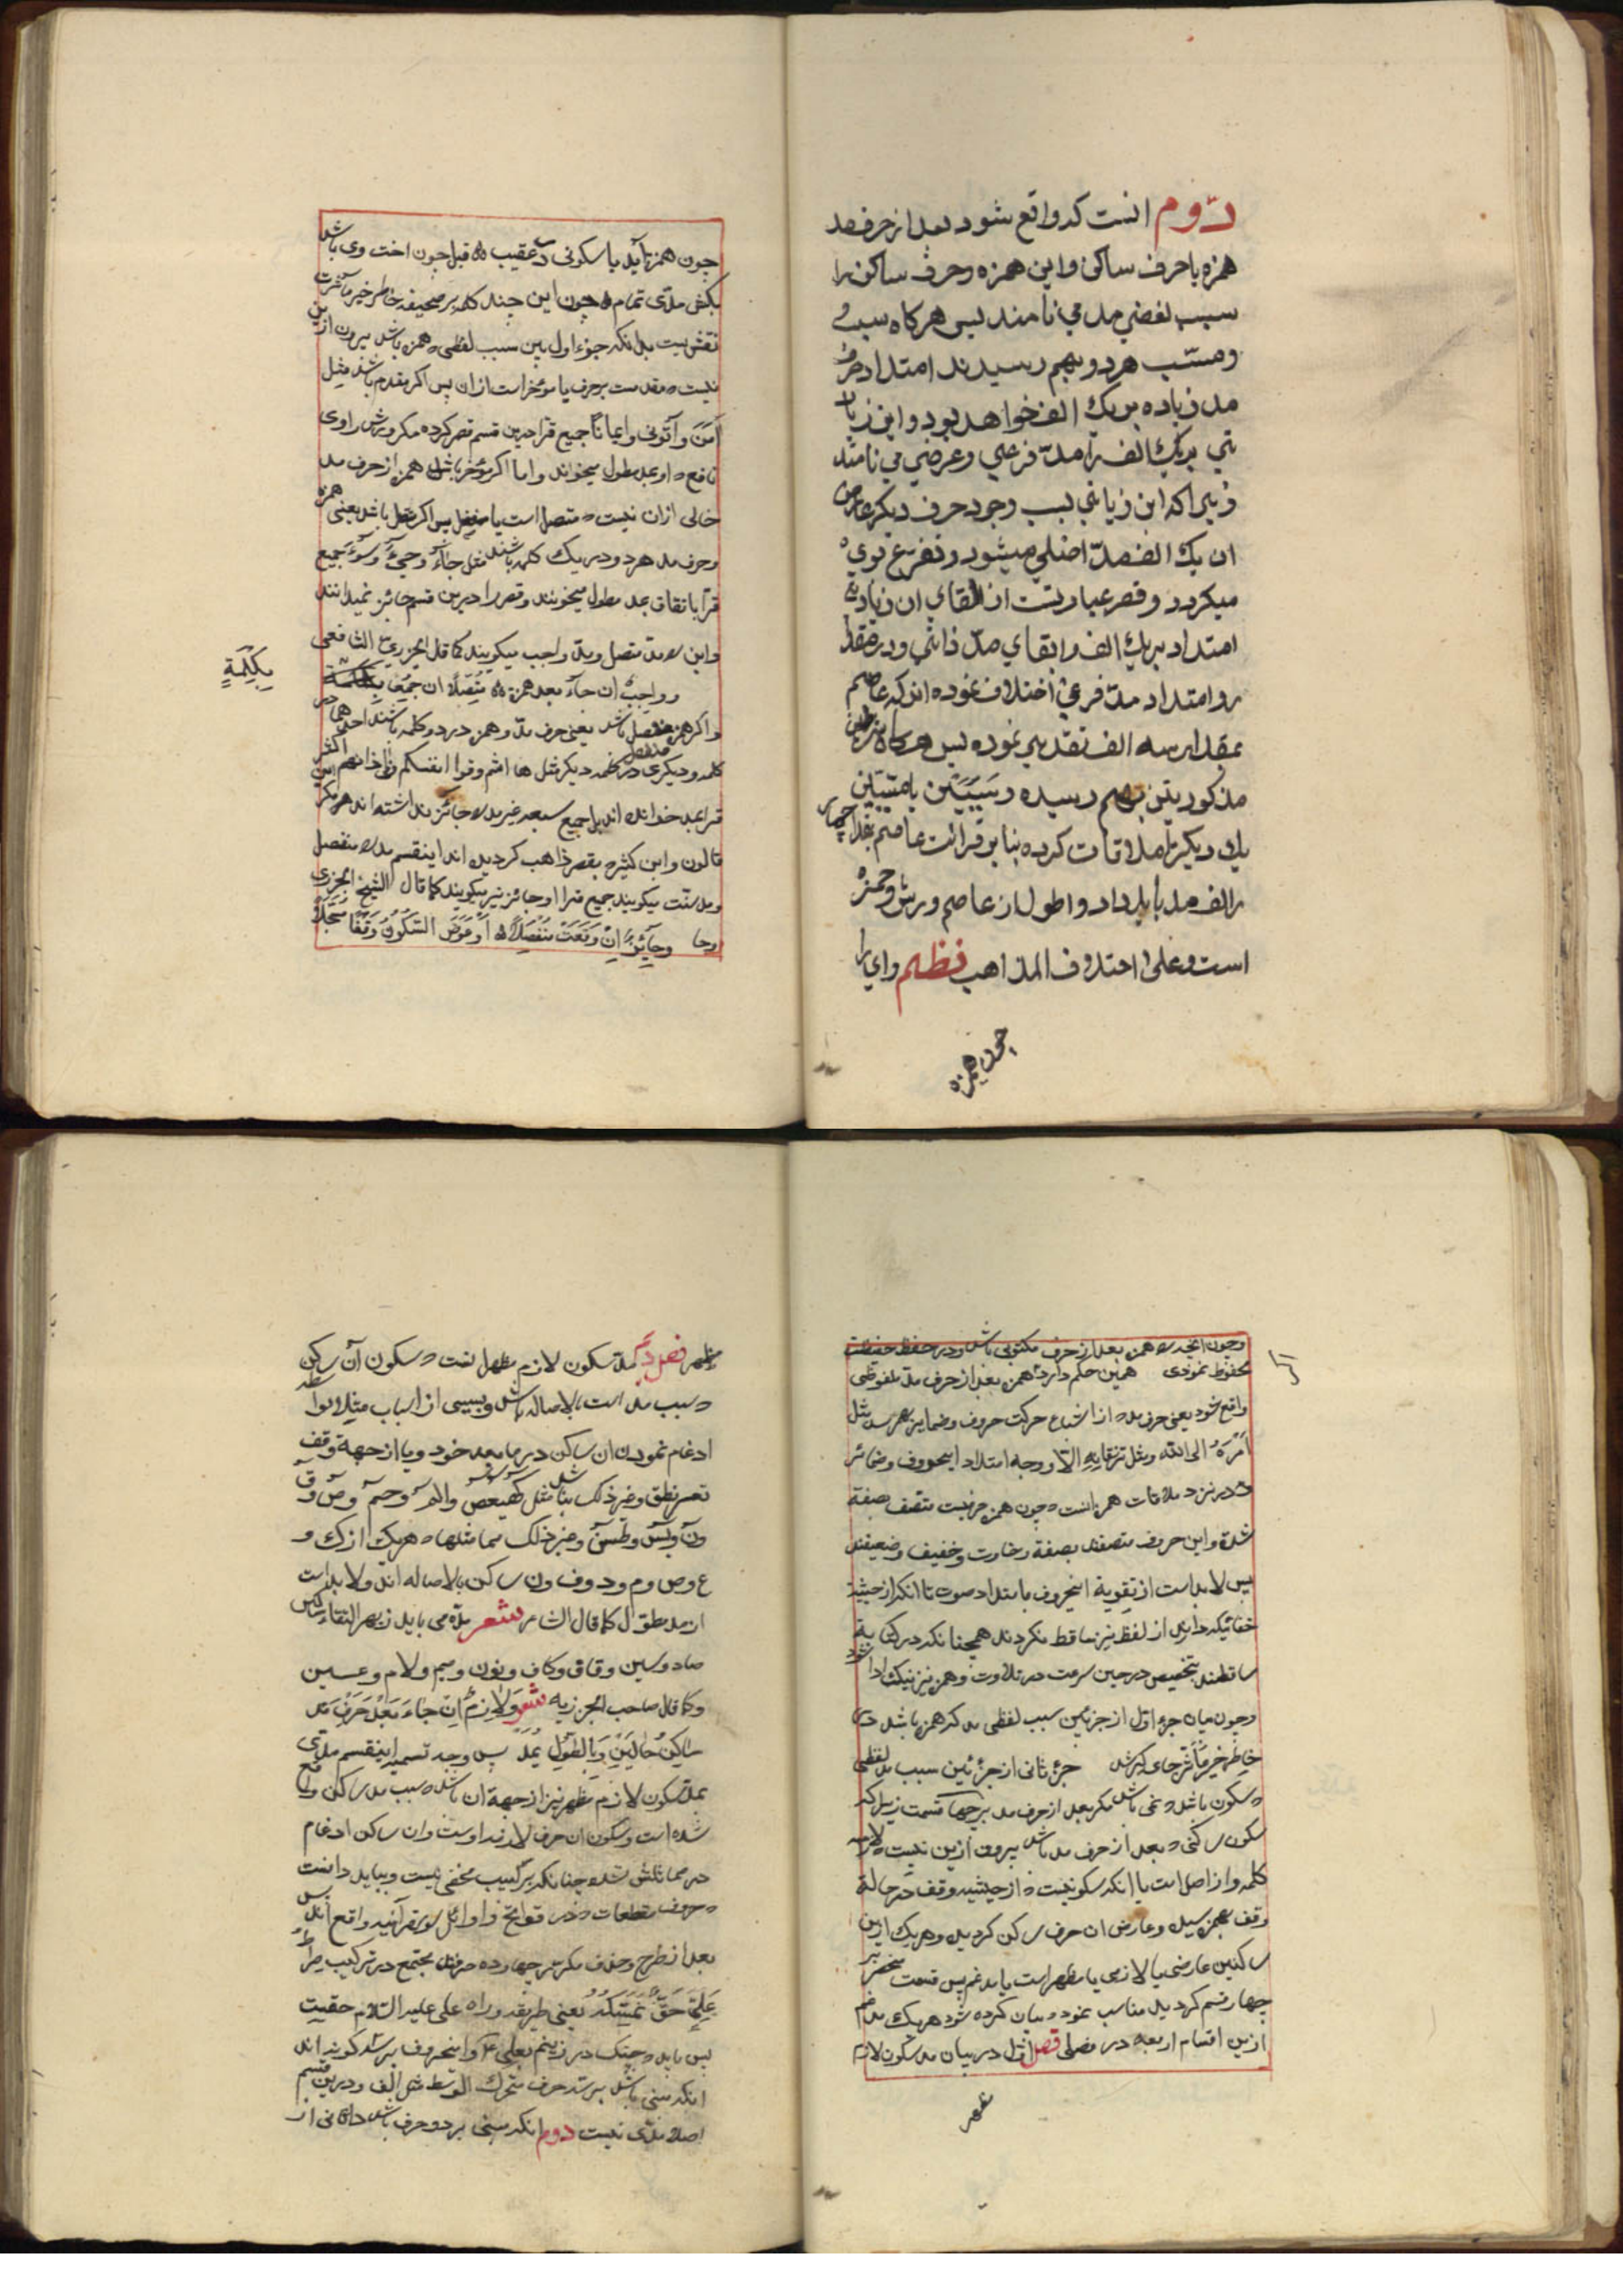 دوم انست که واقع شود بعد از حرف مد
همزه یا حرف ساکن و این همزه و حرف ساکن را
سبب لفضي مد مي نامند پس هرکاه سبب
و مسبّب هر دو بهم رسیدند امتداد حرف
مد زیاده بر یك الف خواهد بود و این زیا
تي بریك الف را مدّ فرعي و عرضي مي نامند
زیرا که این زیاتي بسبب وجود حرف دیکر عارض
ان یك الف مدّ اصلي میشود و تفریع بروي
میکردد و قصر عبارتست از القاي ان زیادتي
امتداد بریك الف و ابقاي مدّ ذاتي و در مقدا
ر و امتداد مدّ فرعي اختلاف نموده اند که عاصم
بمقدار سه الف تقدیر نموده پس هرکاه شرطین
مذکورین بهم رسیده و سَبَبَین یا مسببین
یك دیکر را ملاقات کرده بنا بر قرائت عاصم بقدر چهار
الف مد باید داد و اطول از عاصم ورش و حمزه
است و علی اختلاف المذاهب نظم و اي را
چون همزه
چون همزه آید یا سکونی در عقیب ه قبل چون اخت وی باشد
بکش مدّی تمام ه چون این چند کلمه بر صحیفه خاطر خیر مآثرت
نقش بست بدانکه جزء اول بین سبب لفظی ه همزه باشد بیرون از ین
نیست ه مقدمست بر حرف یا مؤخر است از ان پس اکر مقدم باشد مثل
اٰمَنَ و اٰتونی و ایمانًا جمیع قرا درین قسم قصر کرده مکر ورش راوی
نافع ه او بمد طول میخواند و اما اکر مؤخر باشد همزه از حرف مد
خالی ازان نیست ه متصل است یا منفصل پس اکر متصل باشد یعنی همزه
و حرف مد هر دو در یک کلمه باشند مثل جآءَ و جیٓءَ و سوٓءَ جمیع
قرّا باتفاق بمد مطول میخوانند و قصر را درین قسم جائز نمیدانند
و این را مد متصل و مد واجب میکویند کما قال الجزریّ الشافعی
و واجبٌ ان جآء بعد همزة ه مُتّصِلًا ان جُمِعَا بِکِلْمَةٍ
بِکِلِمَةٍ
و اکر همزه منفصل باشد یعنی حرف مدّ و همزه در دو کلمه باشند احدهما در
کلمه و دیکری در کلمه دیکر مثل ها انتم و قوا انفسکم و فی اذانهم اکثر
قرا بمد خوانده اند بل جمیع سبعه غیر مد را جائز نداشته اند مکر
قالون و ابن کثیر ه بقصر ذاهب کردیده اند اینقسم مد را منفصل
و مد سنت میکویند جمیع قرا او جائز نیز میکویند کما قال الشیخ الجزری
و جآئِزٌ اِنْ وَقَعَتْ مُنْفَصِلًا ه اَوْ عَرَضَ السّکُونُ وَقْفًا مُسْجَلًا
و چون انجه را ه همزه بعد از حرف مکتوبی باشد و در حفظ حفظت
محفوظ نمودی همین حکم دارد همزه بعد از حرف مدّ ملفوظی
واقع شود یعنی حرف مد ه از اشباع حرکت حروف و ضمایر بهم رسد مثل
اَمْرُهُ الی الله و مثل ترزقانِهِ الاّ و وجه امتداد اینحروف و ضمائر
ه در نزد ملاقات همزه انست ه چون همزه حرفیست متصف بصفة
شدة و این حروف متصفند بصفة رخاوت و خفیف و ضعیفند
پس لا بد است از تقویة اینحروف بامتداد صوت تا انکه از حیثیة
خفائیکه دارند از لفظ نیز ساقط نکردند همچنانکه در کتابة
ساقطند بتخصیص در حین سرعت در تلاوت و همزه نیز نیک ادا شود
و چون بیان جزء اول از جزئین سبب لفظی مد که همزه باشد در
خاطر خیر مآثر جای کیر شد جزء ثانی از جزئین سبب مد لفظی
ه سکون باشد ه نمی باشد مکر بعد از حرف مد بر چهار قسمت زیرا که
سکون ساکنی ه بعد از حرف مد باشد بیرون ازین نیست ه لازمه
کلمه و از اصل است یا انکه سکونیست ه از حیثیه وقف در حالة
وقف بهم رسیده و عارض ان حرف ساکن کردیده و هریک ازین
ساکنین عارضی یا لازمی یا مظهر است یا مدغم پس قسمت منحصر بر
چهار قسم کردیده مناسب نمود ه بیان کرده شود هریک
ازین اقسام اربعه در فصلی فصل اوّل در بیان مد سکون لازم
مظهر فصل در مدّ سکون لازم مظهر انست ه سکون آن ساکن
ه سبب مد است بالاصاله باشد و بسببی از اسباب مثلا بواسطه
ادغام نمودن ان ساکن در ما بعد خود و یا از جهة وقف
تعسر نطق و غیر ذلک نباشد مثل کٓهیٰعٓصٓ و الٓمٓرٰ و حمٓ و صٓ و قٓ
و نٓ و یٰسٓ و طسٓمٓ و غیر ذلک مما مثلها ه هریک از ک و
ع و ص و م و د و ف و ن ساکن بالاصاله اند و لا بد است
از مد مطوّل کما قال الشاعر شعر مدّ می باید ز بهر التقاء ساکنین
صاد و سین و قاق و کاف و نون و میم و لام و عین
و کما قال صاحب الجزریه شعر وَ لَازِمٌ اِنْ جَاءَ بَعْدَ حَرْفِ مَد
سَاکِنُ حَالَیْنِ وَ بِالطُولِ یُمَدّ پس وجه تسمیه اینقسم مدی
بمد سکون لازم مظهر نیز از جهة ان باشد ه سبب مد ساکن واقع
شده است و سکون ان حرف لازمه اوست و ان ساکن ادغام
در مماثلش نشده چنانکه بر لبیب مخفی نیست و بباید دانست
ه حروف مقطعات ه در فواتح و اوائل سور قرآنیه واقع اند پس
بعد از طرح و حذف مکرر چهارده حرفند مجتمع در ترکیب صراط
عَلِیٍّ حَقٌّ نُمْسِکُهُ یعنی طریقه و راه علی علیه السلام حقیت
پس باید ه چنک در زنیم بعلی و اینحروف بر سه کونه اند
انکه مبنی باشد بر سه حرف متحرک الوسط مثل الف و درین قسم
اصلا مدّی نیست دوم انکه مبنی بر دو حرف باشد ه ثانی از